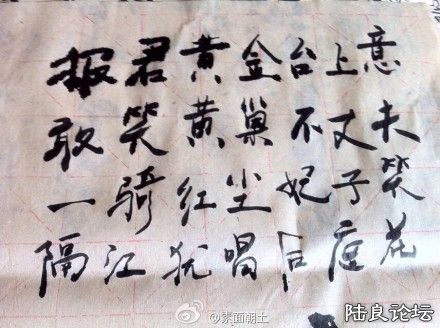 报君黄金台上意
敢笑黄巢不丈夫
一骑红尘妃子笑
隔江犹唱后庭花
@素面朝土
陆良论坛